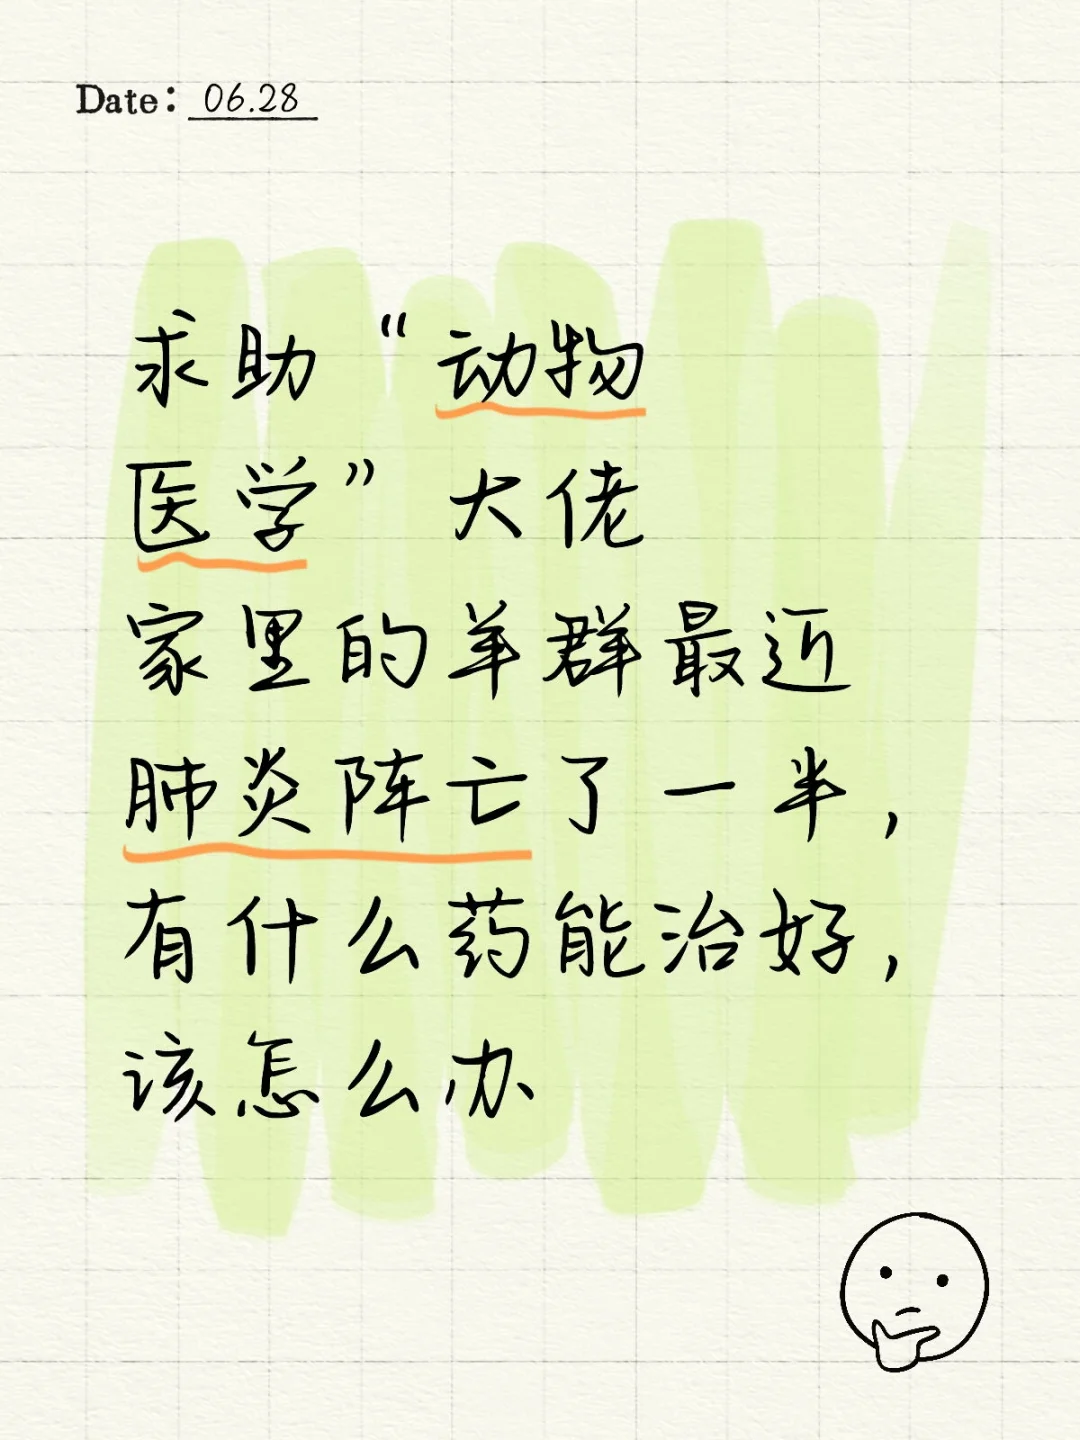 Date: 06.28
求助“动物
医学”大佬
家里的羊群最近
肺炎阵亡了一半，
有什么药能治好，
该怎么办